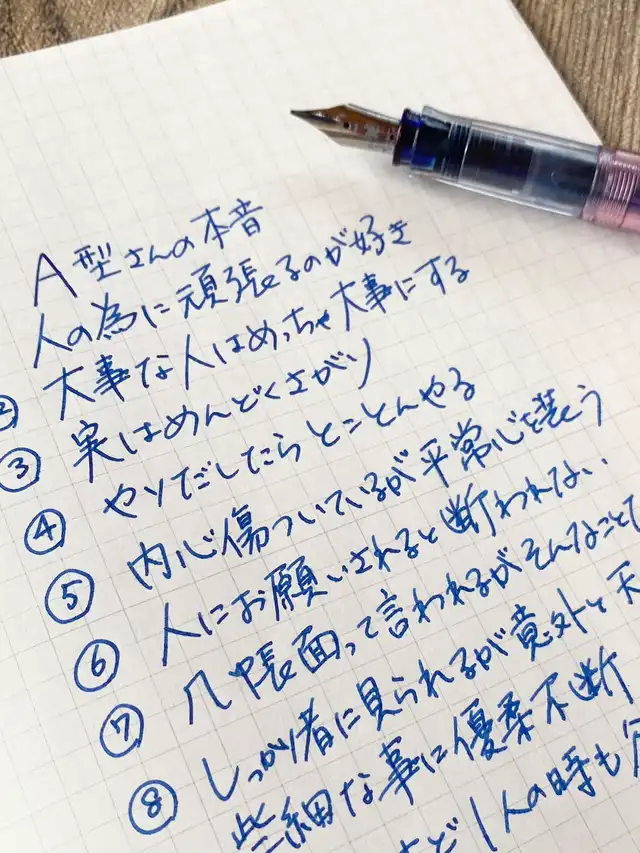 A型さんの本音
人の為に頑張るのが好き
② 大事な人はめっちゃ大事にする
③ 実はめんどくさがり
④ やりだしたらとことんやる
⑤ 内心傷ついているが平常心を装う
⑥ 人にお願いされると断われない
⑦ 几帳面って言われるがそんなこと
⑧ しっかり者に見られるが意外と天
些細な事に優柔不断
ど1人の時も